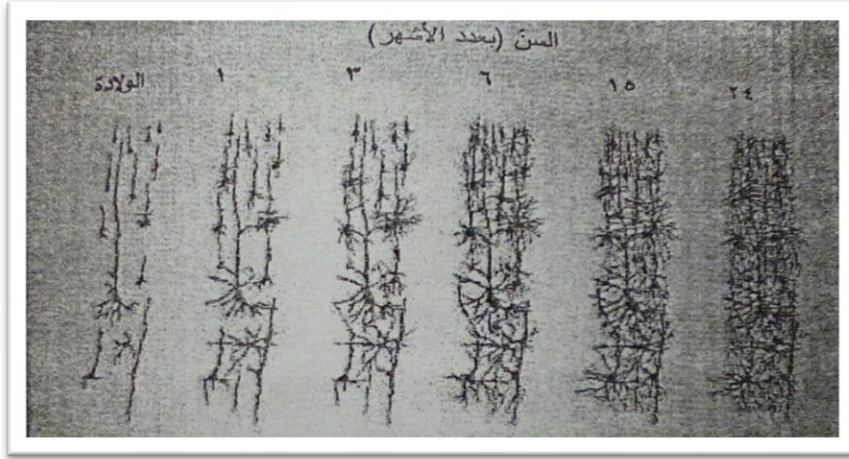 السنّ (بعدد الأشهر)
الولادة ١ ٣ ٦ ١٥ ٢٤